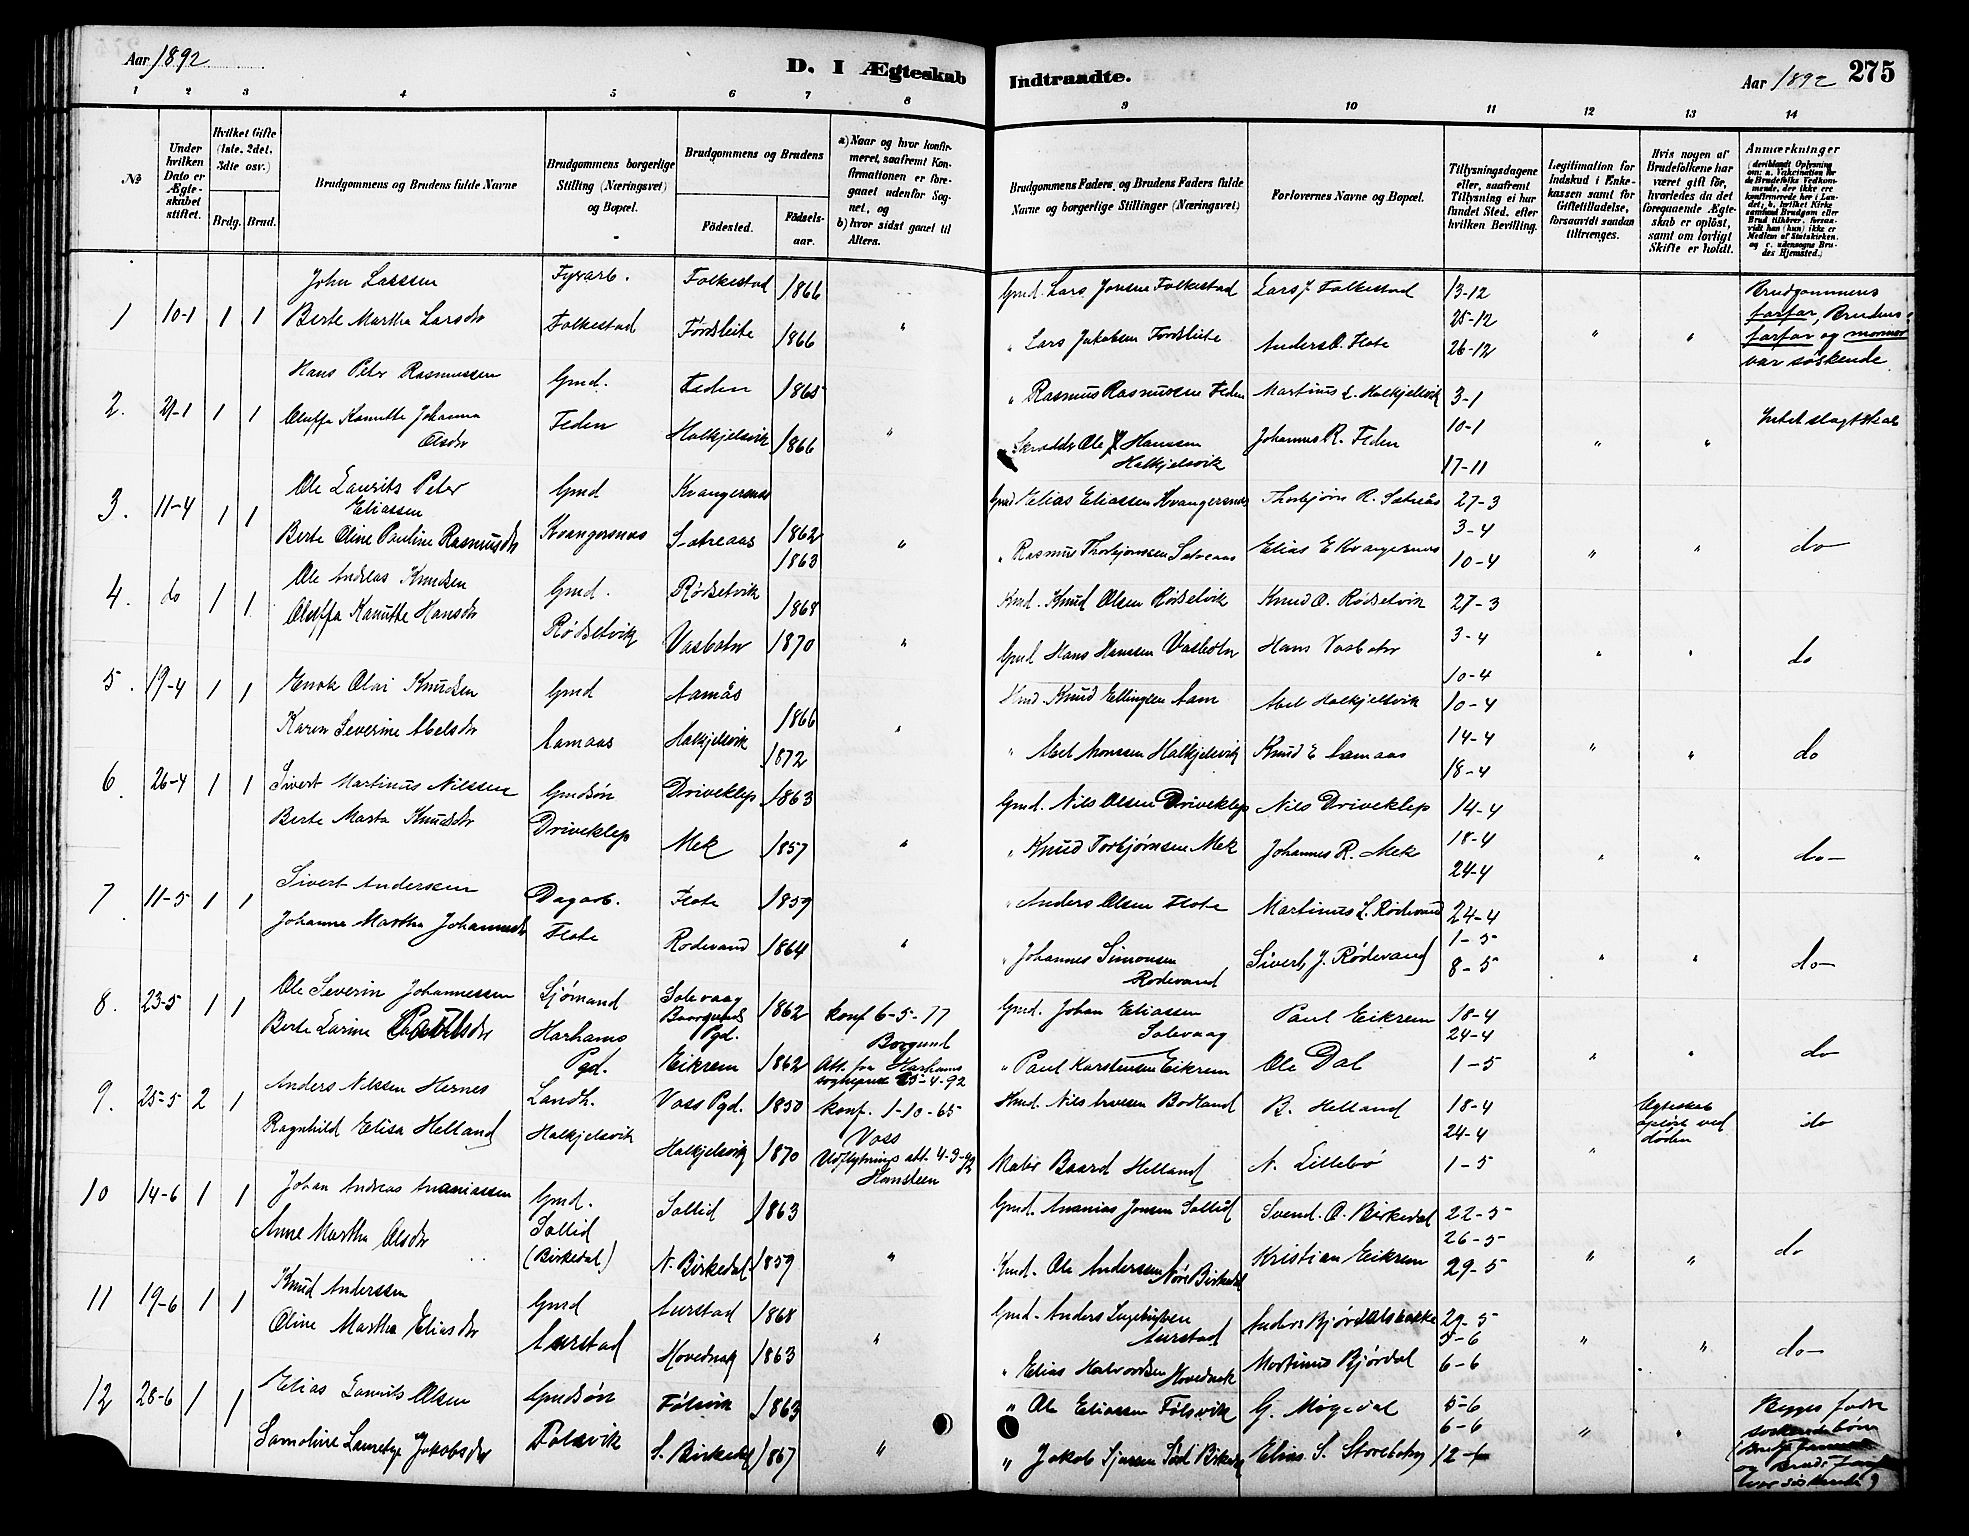 Aar 1892
D. I Ægteskab Indtraadte.
Aar 1892 275
1 2 3 4 5 6 7 8 9 10 11 12 13 14
No
Under hvilken Dato er Ægteskabet stiftet.
Hvilket Gifte (1ste, 2det, 3die osv.)
Brdg. Brud.
Brudgommens og Brudens fulde Navne
Brudgommens borgerlige Stilling (Næringsvei) og Bopæl.
Brudgommens og Brudens
Födested. Födselsaar.
a) Naar og hvor konfirmeret, saafremt Konfirmationen er foregaaet udenfor Sognet, og
b) hvor sidst gaaet til Alters.
Brudgommens Faders og Brudens Faders fulde Navne og borgerlige Stillinger (Næringsvei)
Forlovernes Navne og Bopæl.
Tillysningsdagene eller, saafremt Tillysning ei har fundet Sted, efter hvilken Bevilling.
Legitimation for Indskud i Enkekassen samt for Giftetilladelse, forsaavidt saadan tiltrænges.
Hvis nogen af Brudefolkene har været gift för, hvorledes da det foregaaende Ægteskab er oplöst, samt om lovligt Skifte er holdt.
Anmærkninger
1 10-1 1 1 John Larssen Fyrarb. Folkestad 1866 Gmd. Lars Jonsen Folkestad Lars J. Folkestad 13-12 Brudgommens
Berte Martha Larsdr Folkestad Førdsleite 1866 " Lars Jakobsen Fordsleite Anders O. Flote 25-12 26-12 " " farfar, Brudens farfar og mormor var søskende
2. 21-1 1 1 Hans Peter Rasmussen Gmd. Feden 1865 " Rasmus Rasmussen Feden Martinus L. Halkjelsvik 3-1 Intet slagtskab
Oluffa Kanutte Johanna Olsdr Feden Halkjelsvik 1866 " Skrædder Ole Hanssen Halkjelsvik Johannes R. Feden 10-1 17-11 " "
3. 11-4 1 1 Ole Laurits Peter Eliassen Gmd Kvangersnes 1862 Gmd Elias Eliassen Kvangersnes Thorbjørn R. Sætreås 27-3
Berte Oline Pauline Rasmusdr Kvangersnæs Sætreaas 1863 " " Rasmus Thorbjørnssen Sætreaas Elias E Kvangersnes 3-4 10-4 " " do
4. do 1 1 Ole Andreas Knudsen Gmd. Rødsetvik 1868 Kmd. Knud Olsen Rødsetvik Knud O. Rødsetvik 27-3
Oluffa Kanutte Hansdr Rødsetvik Vasbotn 1870 " Gmd Hans Hanssen Vasbotn Hans Vasbotn 3-4 10-4 " " do
5. 19-4 1 1 Enok Olai Knudsen Gmd Aamås 1866 Kmd. Knud Ellingsen Aam Abel Halkjelsvik 10-4
Karen Severine Abelsdr Aamaas Halkjelsvik 1872 " " Abel Monssen Halkjelsvik Knud E Aamaas 14-4 18-4 " " do
6. 26-4 1 1 Sivert Martinus Nilssen Gmdsøn Driveklep 1863 Gmd. Nils Olsen Driveklep Nils Driveklep 14-4
Berte Marta Knudsdr Driveklep Mek 1857 " " Knud Torbjørnsen Mek Johannes R. Mek 18-4 24-4 " " do
7 11-5 1 1 Sivert Anderssen Dagarb. Flote 1859 " Anders Olsen Flote Martinus L. Rødevand 24-4
Johanne Martha Johannesdr Flote Rodevand 1864 " " Johannes Simonsen Rodevand Sivert J. Rødevand 1-5 8-5 " " do
8. 23-5 1 1 Ole Severin Johannessen Sjømand Solevaag Borgunds Pgd. 1862 konf 6-5-77 Borgund Gmd. Johan Eliassen Solevaag Paul Eikrem 18-4 24-4
Berte Larine Paulsdr Harhams Pgd. Eikrem 1862 Att. fra Harhams sogneprest 25-4-92 " Paul Karstensen Eikrem Ole Dal 1-5 " " do
9. 25-5 2 1 Anders Nilssen Hernes Landh. Voss Pgd. 1850 konf. 1-10-65 Voss Kmd. Nils Iversen Bodland B. Helland 18-4 Egteskab opløst ved døden
Ragnhild Elisa Helland Halkjelsvik Halkjelsvik 1870 Udflytnings att. 4-3-92 Hansteen Maler Baard Helland N. Lillebö 24-4 1-5 " do
10 14-6 1 1 Johan Andreas Ananiassen Gmd. Sollid 1863 Gmd. Ananias Jonsen Sollid Svend. O. Birkedal 22-5
Anne Martha Olsdr Sollid (Birkedal) N. Birkedal 1859 " Kmd. Ole Anderssen Nöre Birkedal Kristian Eikrem 26-5 29-5 " " do
11 19-6 1 1 Knud Anderssen Gmd Aurstad 1868 Gmd. Anders Ingebrigtsen Aurstad Anders Bjørdalsbakke 29-5
Oline Martha Eliasdr Aurstad Hovednak 1863 " " Elias Halvordsen Hovednak Martinus Bjørdal 5-6 6-6 " " do
12 28-6 1 1 Elias Laurits Olsen Gmdsøn Følsvik 1863 " Ole Eliassen Følsvik G. Møgedal 5-6 Begges fædre
Samoline Lauretze Jakobsdr Folsvik S. Birkedal 1867 " " Jakob Sjursen Sørd Birkedal Elias S. Storebotn 6-6 12-6 " " søskendebörn